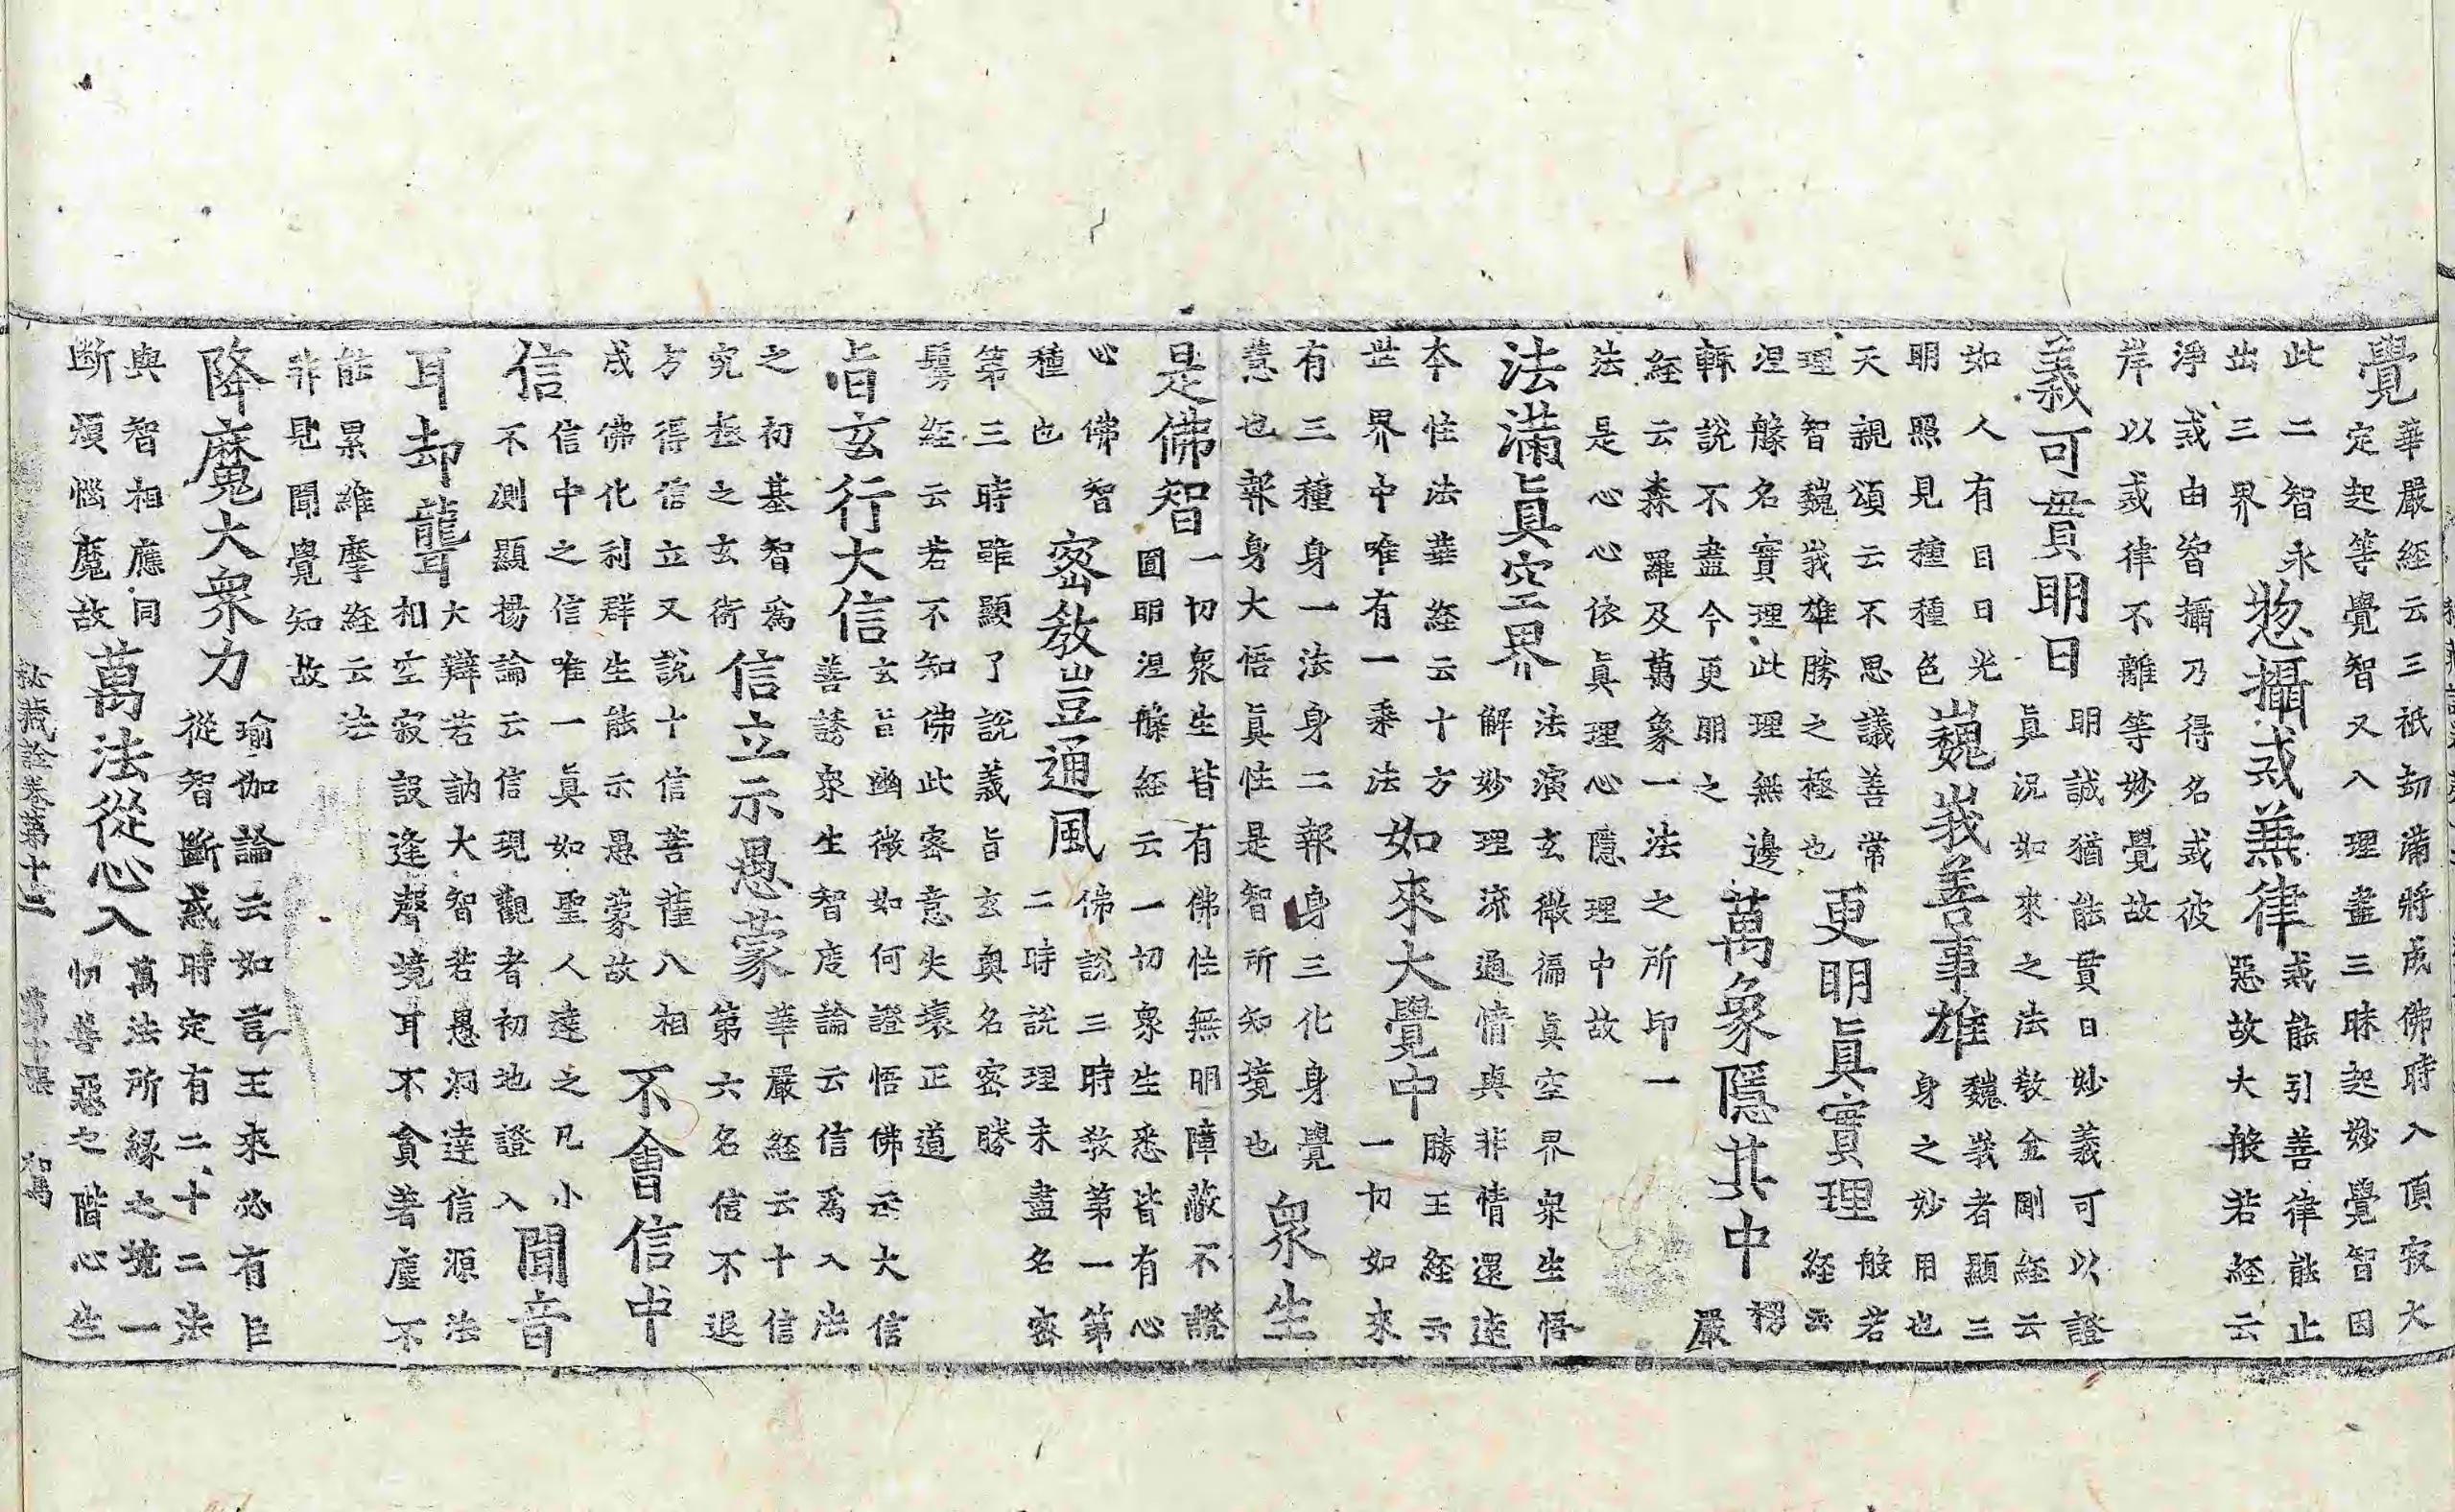 覺華嚴経云三祇劫滿將成佛時入頂寂大
定起等覺智又入理盡三昧起妙覺智因
此二智永
出三界惣攝戒兼律戒能引善律能止
惡故大般若経云
淨戒由智攝乃得名戒彼
岸以戒律不離等妙覺故
義可貫明日明誠猶能貫日妙義可以證
真況如來之法教金剛経云
如人有目日光
明照見種種色巍峩善事雄巍峩者顯三
身之妙用也
天親頌云不思議善常
理智巍峩雄勝之極也更明眞實理般若
経云
涅槃名實理此理無邊
軒說不盡今更明之萬象隱其中楞
嚴
経云森羅及萬象一法之所印一
法是心心依真理心隱理中故
法滿眞空界法演玄微徧真空界衆生悟
解妙理流通情與非情還達
本性法華経云十方
世界中唯有一乘法如來大覺中勝王経云
一切如來
有三種身一法身二報身三化身覺
慧也報身大悟真性是智所知境也衆生
是佛智一切衆生皆有佛性無明障蔽不證
圓耶涅槃経云一切衆生悉皆有心
心佛智
種也密教豈通風佛說三時教第一第
二時說理未盡名密
第三時雖顯了說義旨玄奧名密勝
鬘経云若不知佛此密意失壞正道
旨玄行大信玄旨幽微如何證悟佛示大信
善誘衆生智度論云信爲入法
之初基智爲
究極之玄術信立示愚蒙華嚴経云十信
第六名信不退
方得信立又說十信菩薩八相
成佛化利群生能示愚蒙故不會信中
信信中之信唯一真如聖人達之凡小
不測顯揚論云信現觀者初地證入聞音
耳却聾大辯若訥大智若愚洞達信源法
相空寂設逢聲境耳不貪著虛不
能累維摩経云法
非見聞覺知故
降魔大衆力瑜伽論云如言王來必有臣
從智斷惑時定有二十二法
與智相應同
斷煩惱魔故萬法從心入萬法所緣之境一
切善惡之階心生
秘藏詮卷第十三